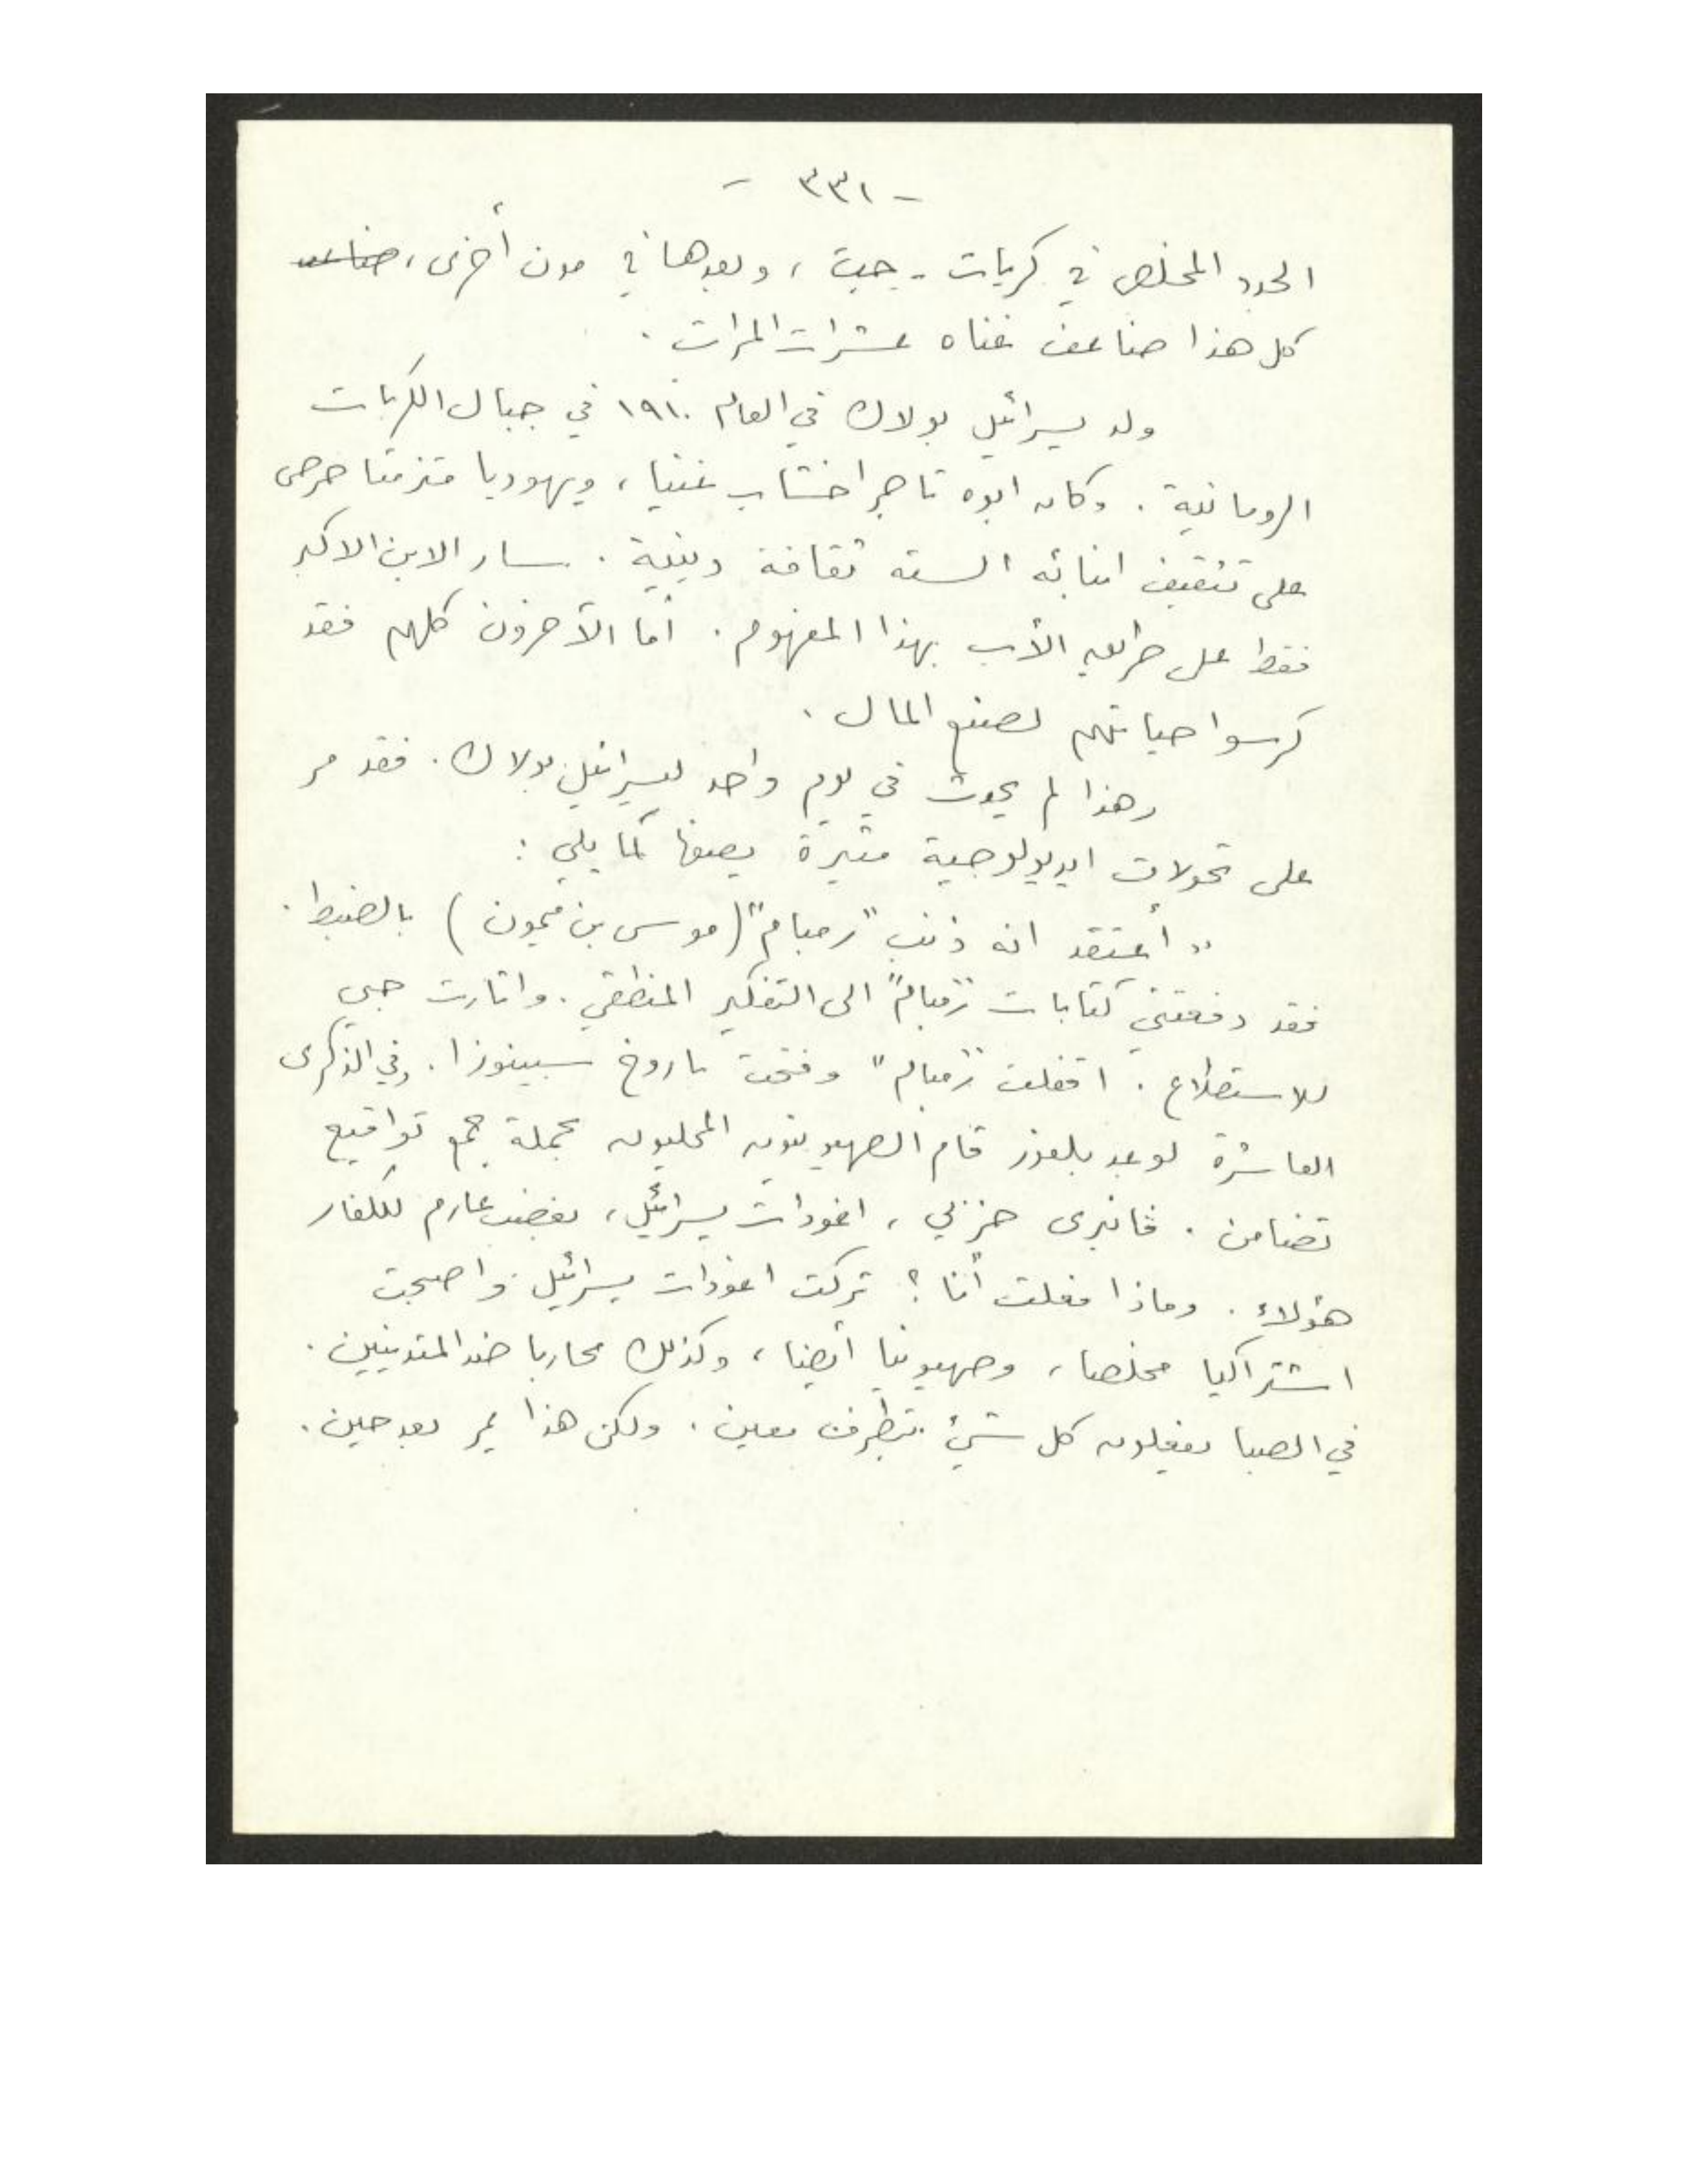 - ٣٣١ -
الجدد المخلص في كريات - جت ، وبعدها في مدن أخرى ،
كل هذا ضاعف غناه عشرات المرات .
ولد يسرائيل بولاك في العام ١٩١٠ في جبال الكربات
الرومانية . وكان ابوه تاجر اخشاب غنيا ، ويهوديا متزمتا حرص
على تثقيف ابنائه الستة ثقافة دينية . سار الابن الاكبر
فقط على طريق الأب بهذا المفهوم . أما الآخرون كلهم فقد
كرسوا حياتهم لصنع المال .
وهذا لم يحدث في يوم واحد ليسرائيل بولاك . فقد مر
على تحولات ايديولوجية مثيرة يصفها كما يلي :
" أعتقد انه ذنب "رمبام" (موسى بن ميمون ) بالضبط .
فقد دفعتني كتابات "رمبام" الى التفكير المنطقي . واثارت حبي
للاستطلاع . اقفلت "رمبام" وفتحت باروخ سبينوزا . وفي الذكرى
العاشرة لوعد بلفور قام الصهيونيون المحليون بحملة جمع تواقيع
تضامن . فانبرى حزبي ، اغودات يسرائيل ، بغضب عارم للكفار
هؤلاء . وماذا فعلت أنا ؟ تركت اغودات يسرائيل واصبحت
اشتراكيا مخلصا ، وصهيونيا أيضا ، وكذلك محاربا ضد المتدينين .
في الصبا يفعلون كل شيء بتطرف معين . ولكن هذا يمر بعد حين .